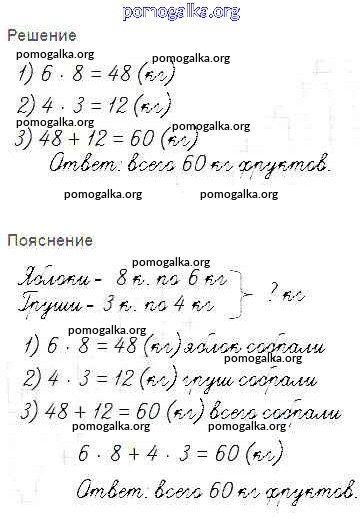 pomogalka.org
Решение
pomogalka.org
1) 6 · 8 = 48 (кг)
pomogalka.org
2) 4 · 3 = 12 (кг)
pomogalka.org
3) 48 + 12 = 60 (кг)
pomogalka.org
Ответ: всего 60 кг фруктов.
pomogalka.org pomogalka.org
Пояснение
pomogalka.org
Яблоки - 8 к. по 6 кг
Груши - 3 к. по 4 кг
? кг
pomogalka.org
1) 6 · 8 = 48 (кг) яблок собрали
pomogalka.org
2) 4 · 3 = 12 (кг) груш собрали
pomogalka.org
3) 48 + 12 = 60 (кг) всего собрали
pomogalka.org pomogalka.org
6 · 8 + 4 · 3 = 60 (кг)
pomogalka.org pomogalka.org
Ответ: всего 60 кг фруктов.